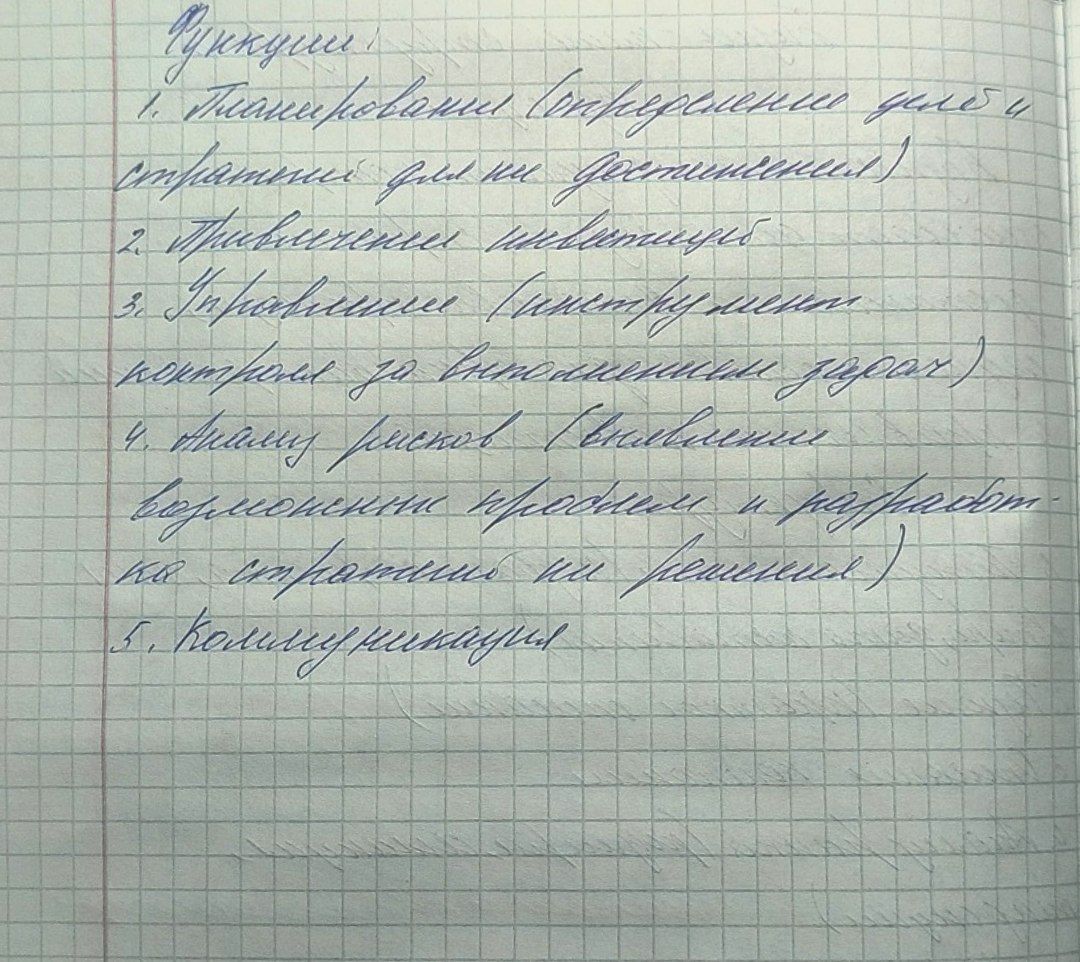 Функции:
1. Планирования (определение целей и
стратегий для их достижения)
2. Привлечения инвестиций
3. Управление (инструмент
контроля за выполнением задач)
4. Анализ рисков (выявление
возможных проблем и разработ-
ка стратегий их решения)
5. Коммуникация